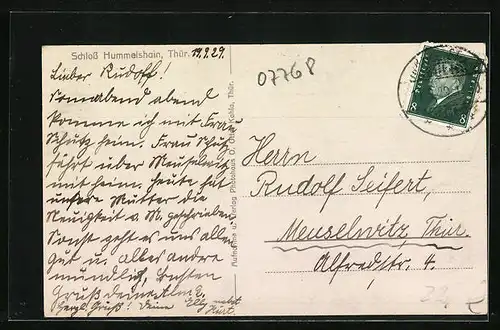 Schloß Hummelshain, Thür.
19.9.29.
Lieber Rudolf!
Sonnabend abend
komme ich mit Frau
Schutz heim. Frau Schutz
fährt über Meuselwitz
mit heim. Heute hat
unsere Mutter die
Neuigkeit a. M. geschrieben.
Sonst geht es uns allen
gut u. alles andre
mündlich. Besten
Gruß deine
Herzl. Gruß! Deine
nebst
Kurt.
07768
Aufnahme u. Verlag Photohaus O. Kahla, Thür.
8 8
Herrn
Rudolf Seifert,
Meuselwitz, Thür.
Alfredstr. 4.